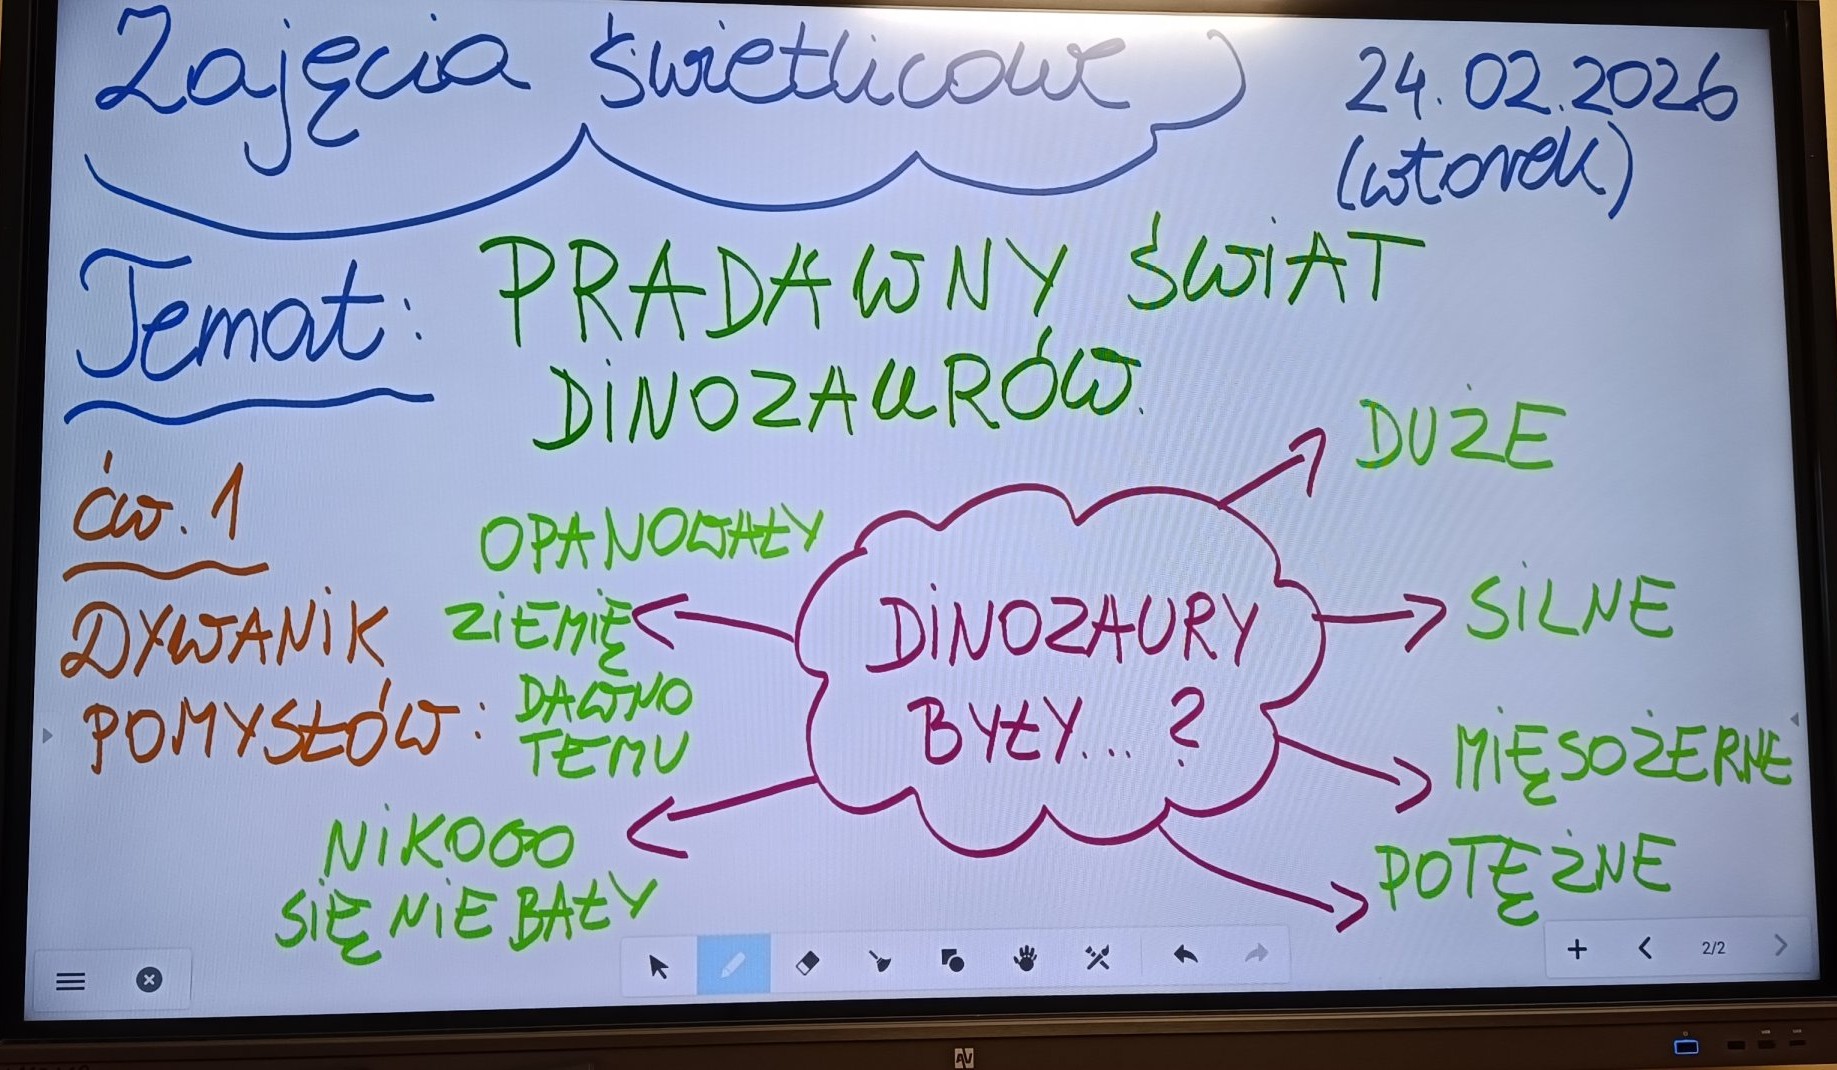 Zajęcia świetlicowe
24.02.2026
(wtorek)
Temat: PRADAWNY ŚWIAT
DINOZAURÓW.
ćw. 1
DYWANIK
POMYSŁÓW:
DINOZAURY
BYŁY... ?
DUŻE
SILNE
MIĘSOŻERNE
POTĘŻNE
OPANOWAŁY
ZIEMIĘ
DAWNO
TEMU
NIKOGO
SIĘ NIE BAŁY
2/2
AV